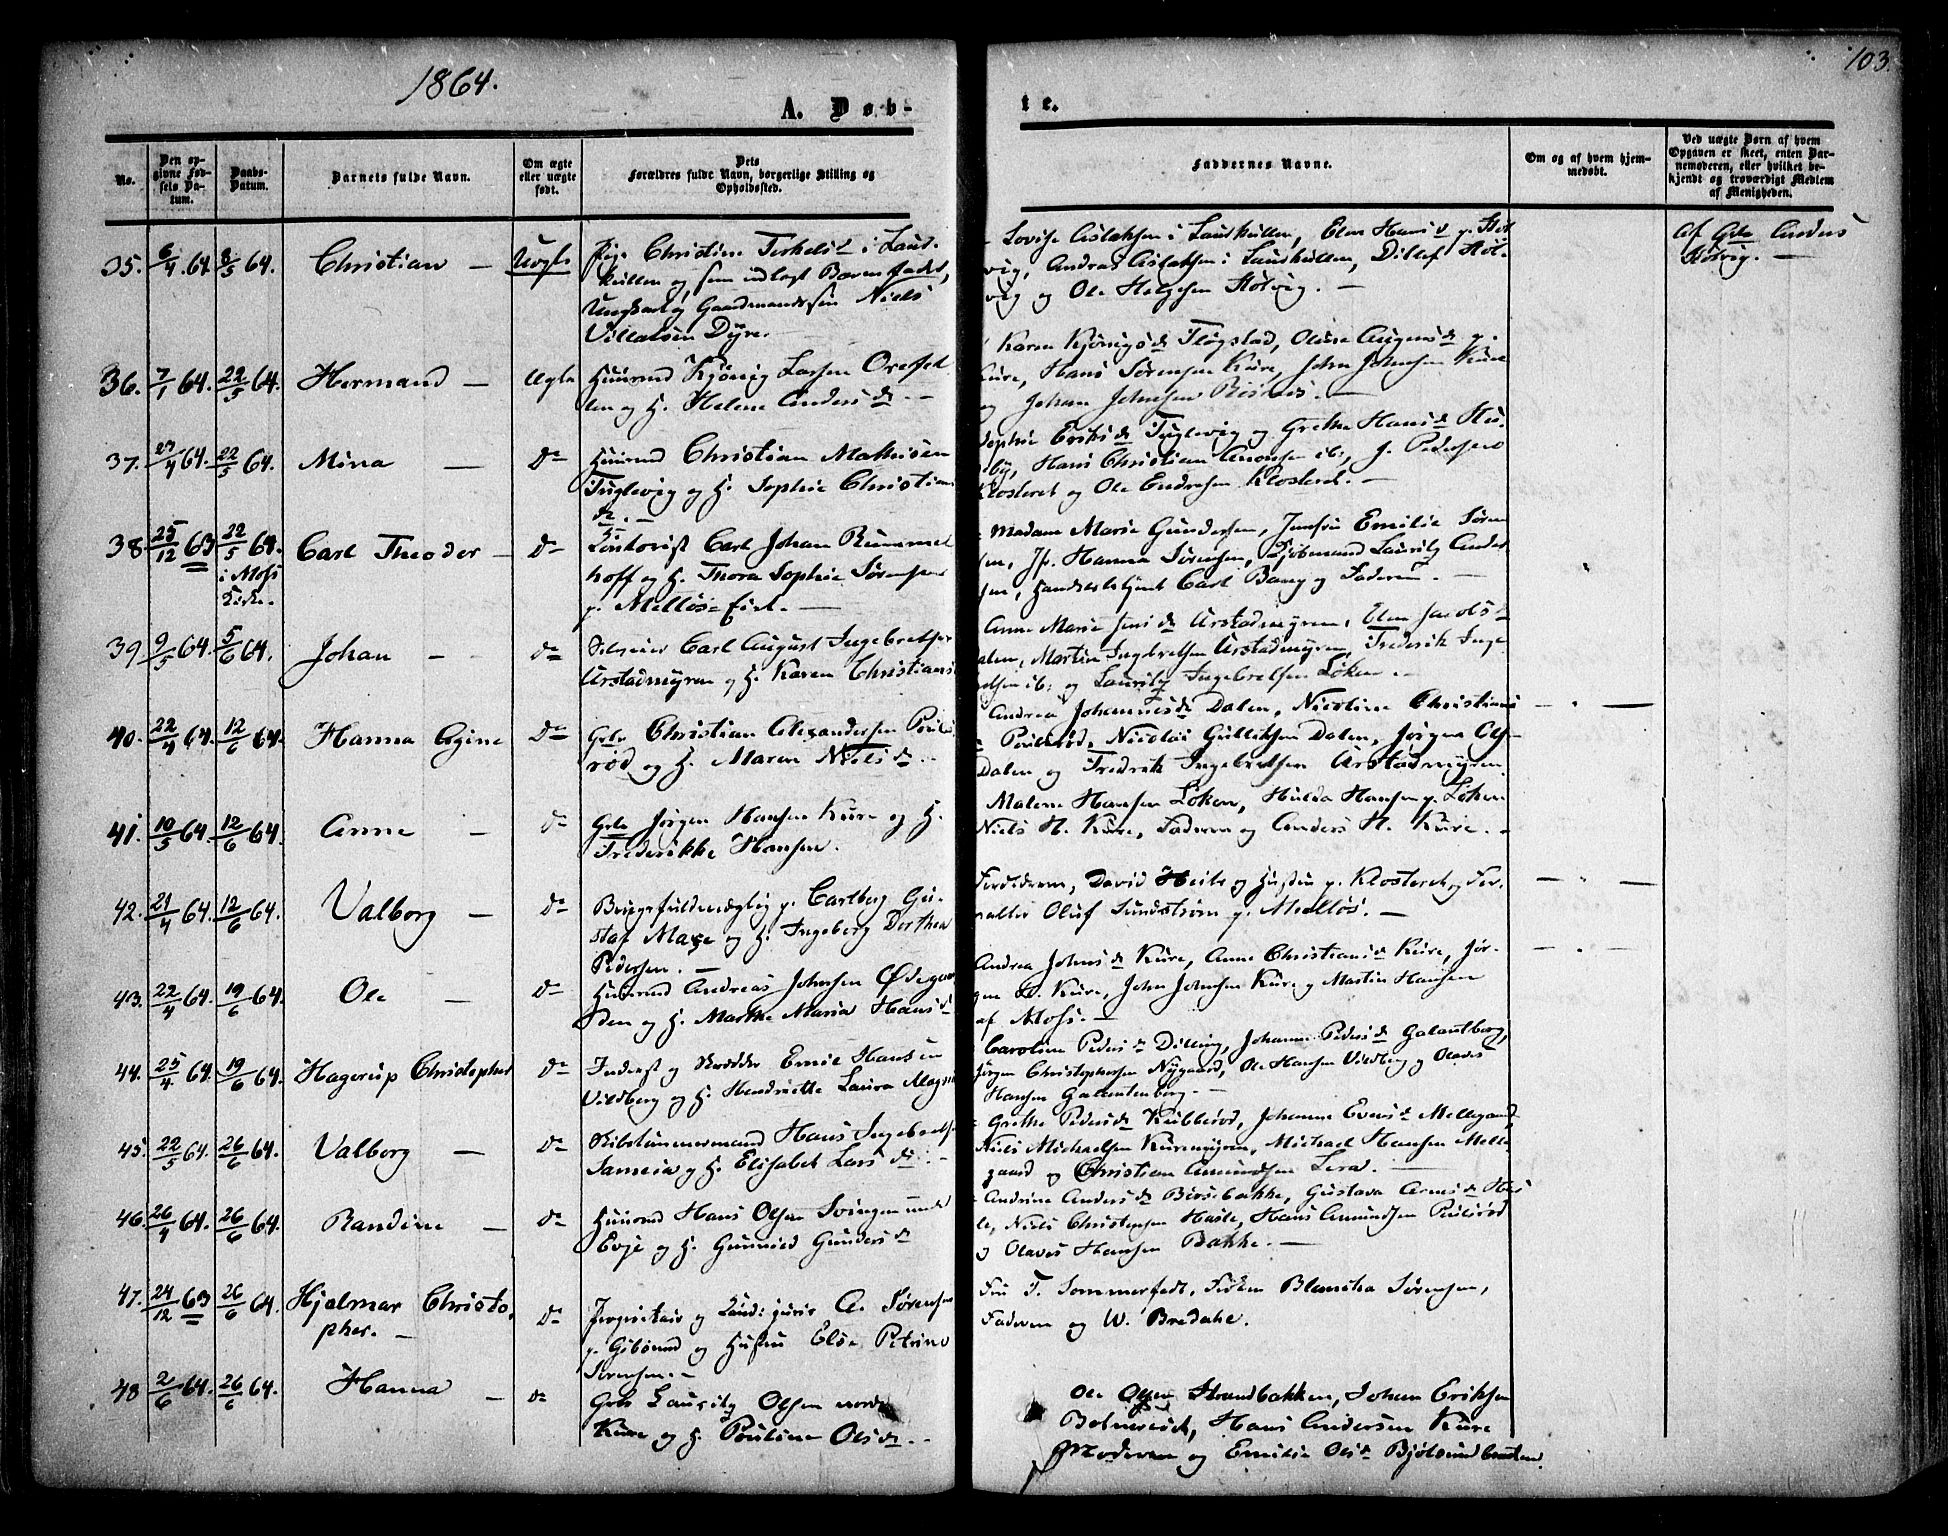 1864.
103.
A. Døb-
te.
No.
Den opgivne Fødsels Datum.
Daabs-Datum.
Barnets fulde Navn.
Om ægte eller uægte født.
Dets Forældres fulde Navn, borgerlige Stilling og Opholdssted.
Faddernes Navne.
Om og af hvem hjemmedøbt.
Ved uægte Børn af hvem Opgaven er skeet, enten Barnemoderen, eller hvilket bekjendt og troværdigt Medlem af Menigheden.
35. 6/4 64. 8/5 64. Christian — Uægte Pige Christine Terkelsd. i Laus-
kullen og, som udlagt Barnefader,
Ungkarl og Gaardmandssøn Niels
Villatsen Dyre.
Lovise Aslaksen i Lauskullen, Elen Hansd. p. Hol
vig, Andreas Aslaksen i Lauskullen, Ditlef Hol-
vig og Ole Helgesen Holvig. —
af Ole Anders
Holvig. —
36. 7/1 64. 22/5 64. Hermand — Ægte Huusmd Kjönig Larsen Orefjel
len og H. Helene Andersdr. —
Karen Kjönigsdr Flogstad, Oline Augensdr p.
Kure, Hans Sørensen Kure, John Johnsen Kure
og Johan Johnsen Rosnes. —
37. 27/4 64. 22/5 64. Mina — Do Huusmd Christian Mathisen
Tuglevig og H. Sophie Christians
dr. —
Sophie Eriksdr Tuglevig og Grethe Hansdr Hus-
by, Hans Christian Aronsen ib:, J. Pedersen
Klosteret og Ole Endresen Klosteret. —
38. 25/12 63 22/5 64. Carl Theodor — Do Contorist Carl Johan Rummel
i Moss
Kirke.
hoff og H. Thora Sophie Sørensen
p. Melløs-Eier. —
Madam Marie Gundersen, Jomfru Emilie Søren
sen, Jfr. Hanna Sørensen, Kjøbmand Lauritz Ander
sen, Handelsbetjent Carl Bang og Faderen. —
39. 9/5 64. 5/6 64. Johan — Do Selveier Carl August Ingebretsen
Årstadmyren og H. Karen Christiansd
Anne Marie Jensdr Årstadmyren, Elen Jacobsd
Dalen, Martin Ingebretsen Årstadmyren, Frederik Inge
bretsen ib: og Lauritz Ingebretsen Løken. —
40. 22/4 64. 12/6 64. Hanna Agine Do Gbr Christian Alexandersen Pouls
rød og H. Maren Nielsdr. —
Andrea Johannesdr Dalen, Nicoline Christians
Poulsrød, Nicolai Gulliksen Dalen, Jørgen Ols-
Dalen og Fredrik Ingebretsen Årstadmyren.
41. 10/5 64. 12/6 64. Anne — Do Gbr Jørgen Hansen Kure og H.
Frederikke Hansen.
Malene Hansen Løken, Hulda Hansen p. Løken
Niels H. Kure, Faderen og Anders H. Kure. —
42. 21/4 64. 12/6 64. Valborg — Do Brugsfuldmægtig p. Carlberg Gu-
staf Maxe og H. Ingeborg Dorthea
Pedersen. —
Forældrene, David Heits og Hustru p. Klosteret og For-
valter Oluf Sundstrøm p. Melløs. —
43. 22/4 64. 19/6 64. Ole — Do Huusmd Andreas Johnsen Ødegaar
den og H. Marthe Maria Hansd
Andrea Johnsdr Kure, Anne Christiansdr Kure, Jør-
gen H. Kure, John Johnsen Kure og Martin Hansen
af Moss. —
44. 25/4 64. 19/6 64. Hagerup Christopher Do Inderst og Skrædder Emil Hansen
Vildberg og H. Hendriette Laura Magn
Caroline Pedersdr Dilling, Johanne Pedersdr Galautberg,
Jørgen Christophersen Nygaard, Ole Hansen Vildberg og Olaves
Hansen Galautenberg. —
45. 22/5 64. 26/6 64. Valborg — Do Skibstømmermand Hans Ingebretsen
Sameia og H. Elisabet Larsdr. —
Grethe Pedersdr Kubberød, Johanne Eversdr Mellegaard,
Niels Michaelsen Kuremyren, Michael Hansen Melle
gaard og Christian Amundsen Lera. —
46. 26/4 64. 26/6 64. Randine — Do Huusmd Hans Olsen Svingen under
Evje og H. Gunnild Gundersdr
Andrine Andersdr Birsebakke, Gustava Arnesdr Has
le, Niels Christensen Hasle, Hans Amundsen Poulsrød
og Olaves Hansen Bakke. —
47. 24/12 63 26/6 64. Hjalmar Christo-
pher. — Do Proprietair og Cand: juris A. Sørensen
p. Gibsund og Hustru Else Petrine
Sørensen. —
Fru F. Sommerfedt, Frøken Blancka Sørensen,
Faderen og W. Bredahe.
48 2/6 64. 26/6 64. Hanna — do Gbr Lauritz Olsen nordre
Kure og H. Pouline Olsdr. —
Ole Olsen Strandbakken, Johan Eriksen
Botnerud, Hans Andersen Kure
Moderen og Emilie Olsdr Bjølsundbraaten.